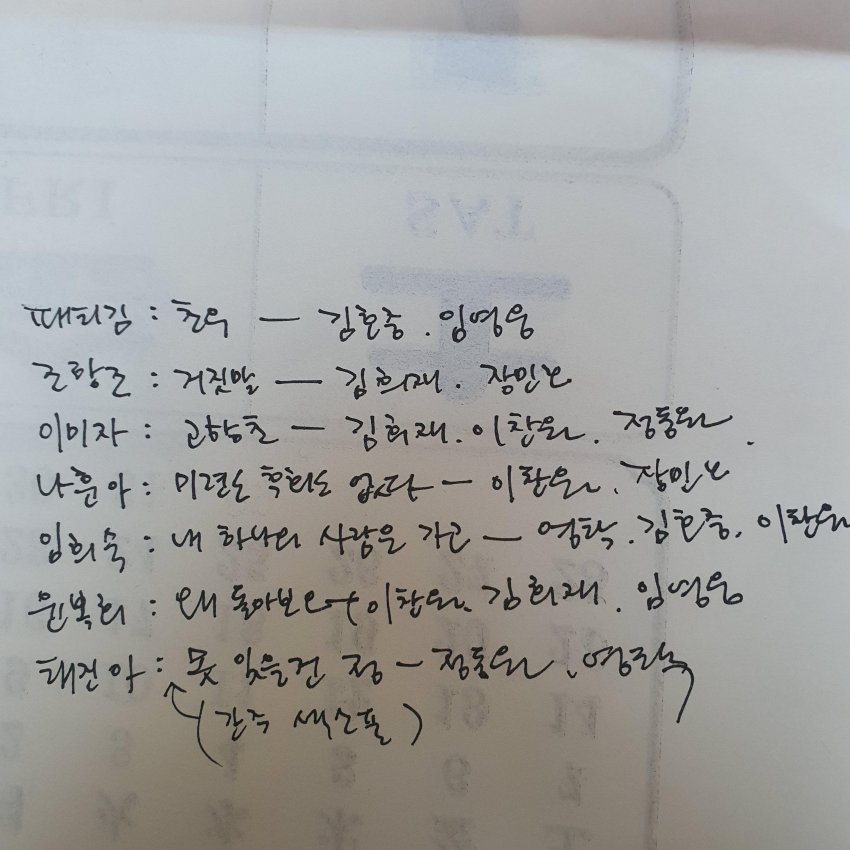 패티김 : 초우 — 김호중 . 임영웅
조항조 : 거짓말 — 김희재 . 장민호
이미자 : 고향초 — 김희재 . 이찬원 . 정동원 .
나훈아 : 미련도 후회도 없다 — 이찬원 . 장민호
임희숙 : 내 하나의 사랑은 가고 — 영탁 . 김호중 . 이찬원
윤복희 : 왜 돌아보오 — 이찬원 . 김희재 . 임영웅
태진아 : 못 잊을건 정 — 정동원 . 영탁
(간주 색소폰)